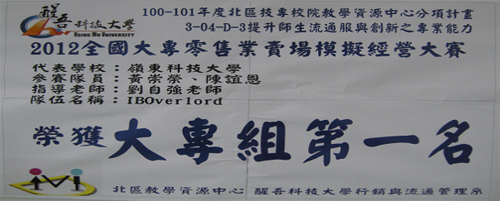 醒吾科技大學
HSING WU UNIVERSITY
100-101年度北區技專校院教學資源中心分項計畫
3-04-D-3提升師生流通服與創新之專業能力
2012全國大專零售業賣場模擬經營大賽
代表學校：嶺東科技大學
參賽隊員：黃崇榮、陳誼恩
指導老師：劉自強老師
隊伍名稱：IBOverlord
榮獲 大專組第一名
北區教學資源中心 醒吾科技大學行銷與流通管理系